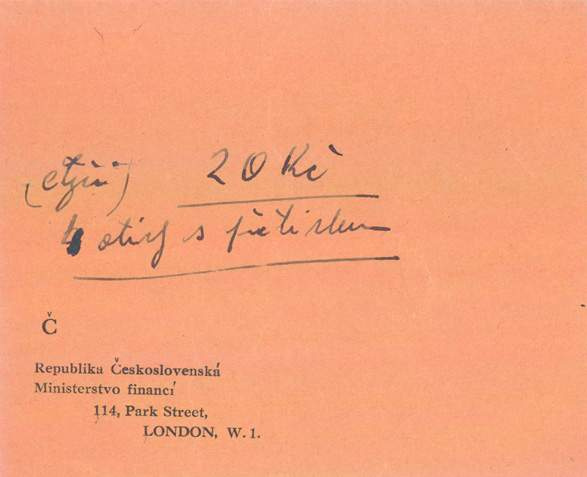 (čtyři) 20 Kč
4 otisky s přítiskem
Č
Republika Československá
Ministerstvo financí
114, Park Street,
LONDON, W. 1.